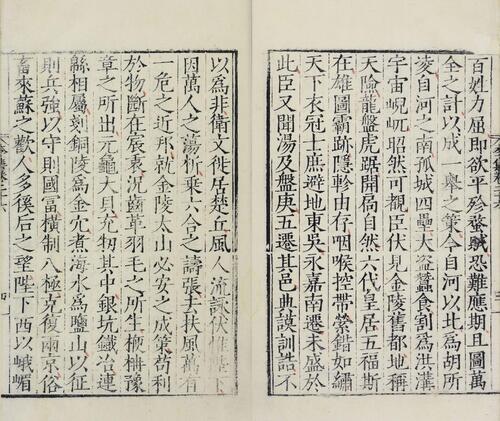 百姓力屈即欲平殄蝥賊恐難應期且圖萬
全之計以成一舉之策今自河以北爲胡所
凌自河之南孤城四壘大盗蠶食割爲洪溝
宇宙㟧屼昭然可覩臣伏見金陵舊都地稱
天險龍盤虎踞開扃自然六代皇居五福斯
在雄圖霸跡隱軫由存咽喉控帶縈錯如繡
天下衣冠士庶避地東吳永嘉南遷未盛於
此臣又聞湯及盤庚五遷其邑典謨訓誥不
以爲非衛文徙居楚丘風人流詠伏惟陛下
因萬人之蕩析乘六合之譸張去扶風萬有
一危之近邦就金陵太山必安之成策苟利
於物斷在宸衷況齒革羽毛之所生楩柟豫
章之所出元龜大貝充牣其中銀坑鐵冶連
緜相屬剗銅陵爲金穴煮海水爲鹽山以征
則兵強以守則國富橫制八極克復兩京俗
畜來蘇之歡人多徯后之望陛下西以峨嵋